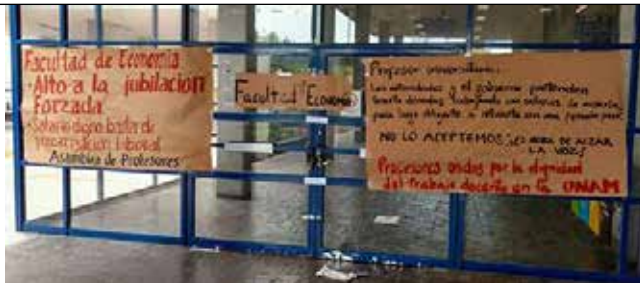 Facultad de Economía
• Alto a la jubilación
Forzada
• Salario digno basta de
precarización laboral
Asamblea de Profesores
Facultad Economía
Profesor universitario:
Las autoridades y el gobierno pretenden
tenerte décadas trabajando con salarios de miseria,
para luego obligarte a retirarte con una pensión peor.
NO LO ACEPTEMOS ¡ES HORA DE ALZAR
LA VOZ!
Profesores unidos por la dignidad
del trabajo docente en la UNAM